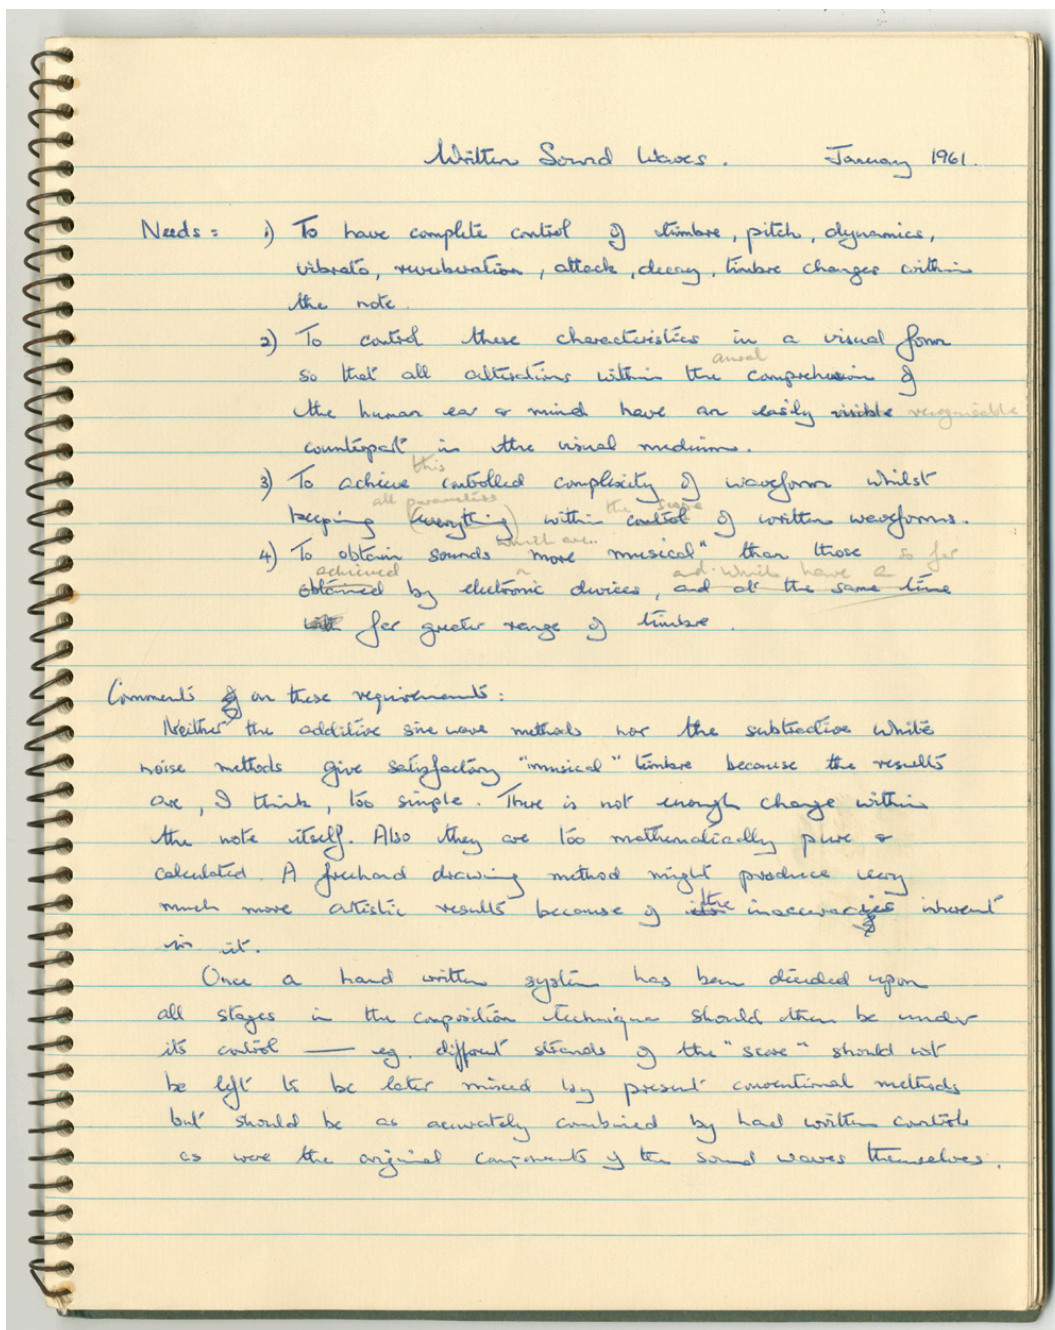 Written Sound Waves. January 1961.
Needs = 1) To have complete control of timbre, pitch, dynamics,
vibrato, reverberation, attack, decay, timbre changes within
the note.
2) To control these characteristics in a visual form
aural
so that all alterations within the comprehension of
the human ear & mind have an easily visible recognisable
counterpart in the visual medium.
this
3) To achieve controlled complexity of waveform whilst
all parameters the scope
keeping (everything) within control of written waveforms.
which are..
4) To obtain sounds "more musical" than those so far
achieved and which have a
obtained by electronic devices, and at the same time
far greater range of timbre.
Comments on these requirements:
Neither the additive sine wave methods nor the subtractive white
noise methods give satisfactory "musical" timbre because the results
are, I think, too simple. There is not enough change within
the note itself. Also they are too mathematically pure &
calculated. A freehand drawing method might produce very
much more artistic results because of its the inaccuracies inherent
in it.
Once a hand written system has been decided upon
all stages in the composition technique should then be under
its control — eg. different strands of the "score" should not
be left to be later mixed by present conventional methods
but should be as accurately combined by hand written controls
as were the original components of the sound waves themselves.